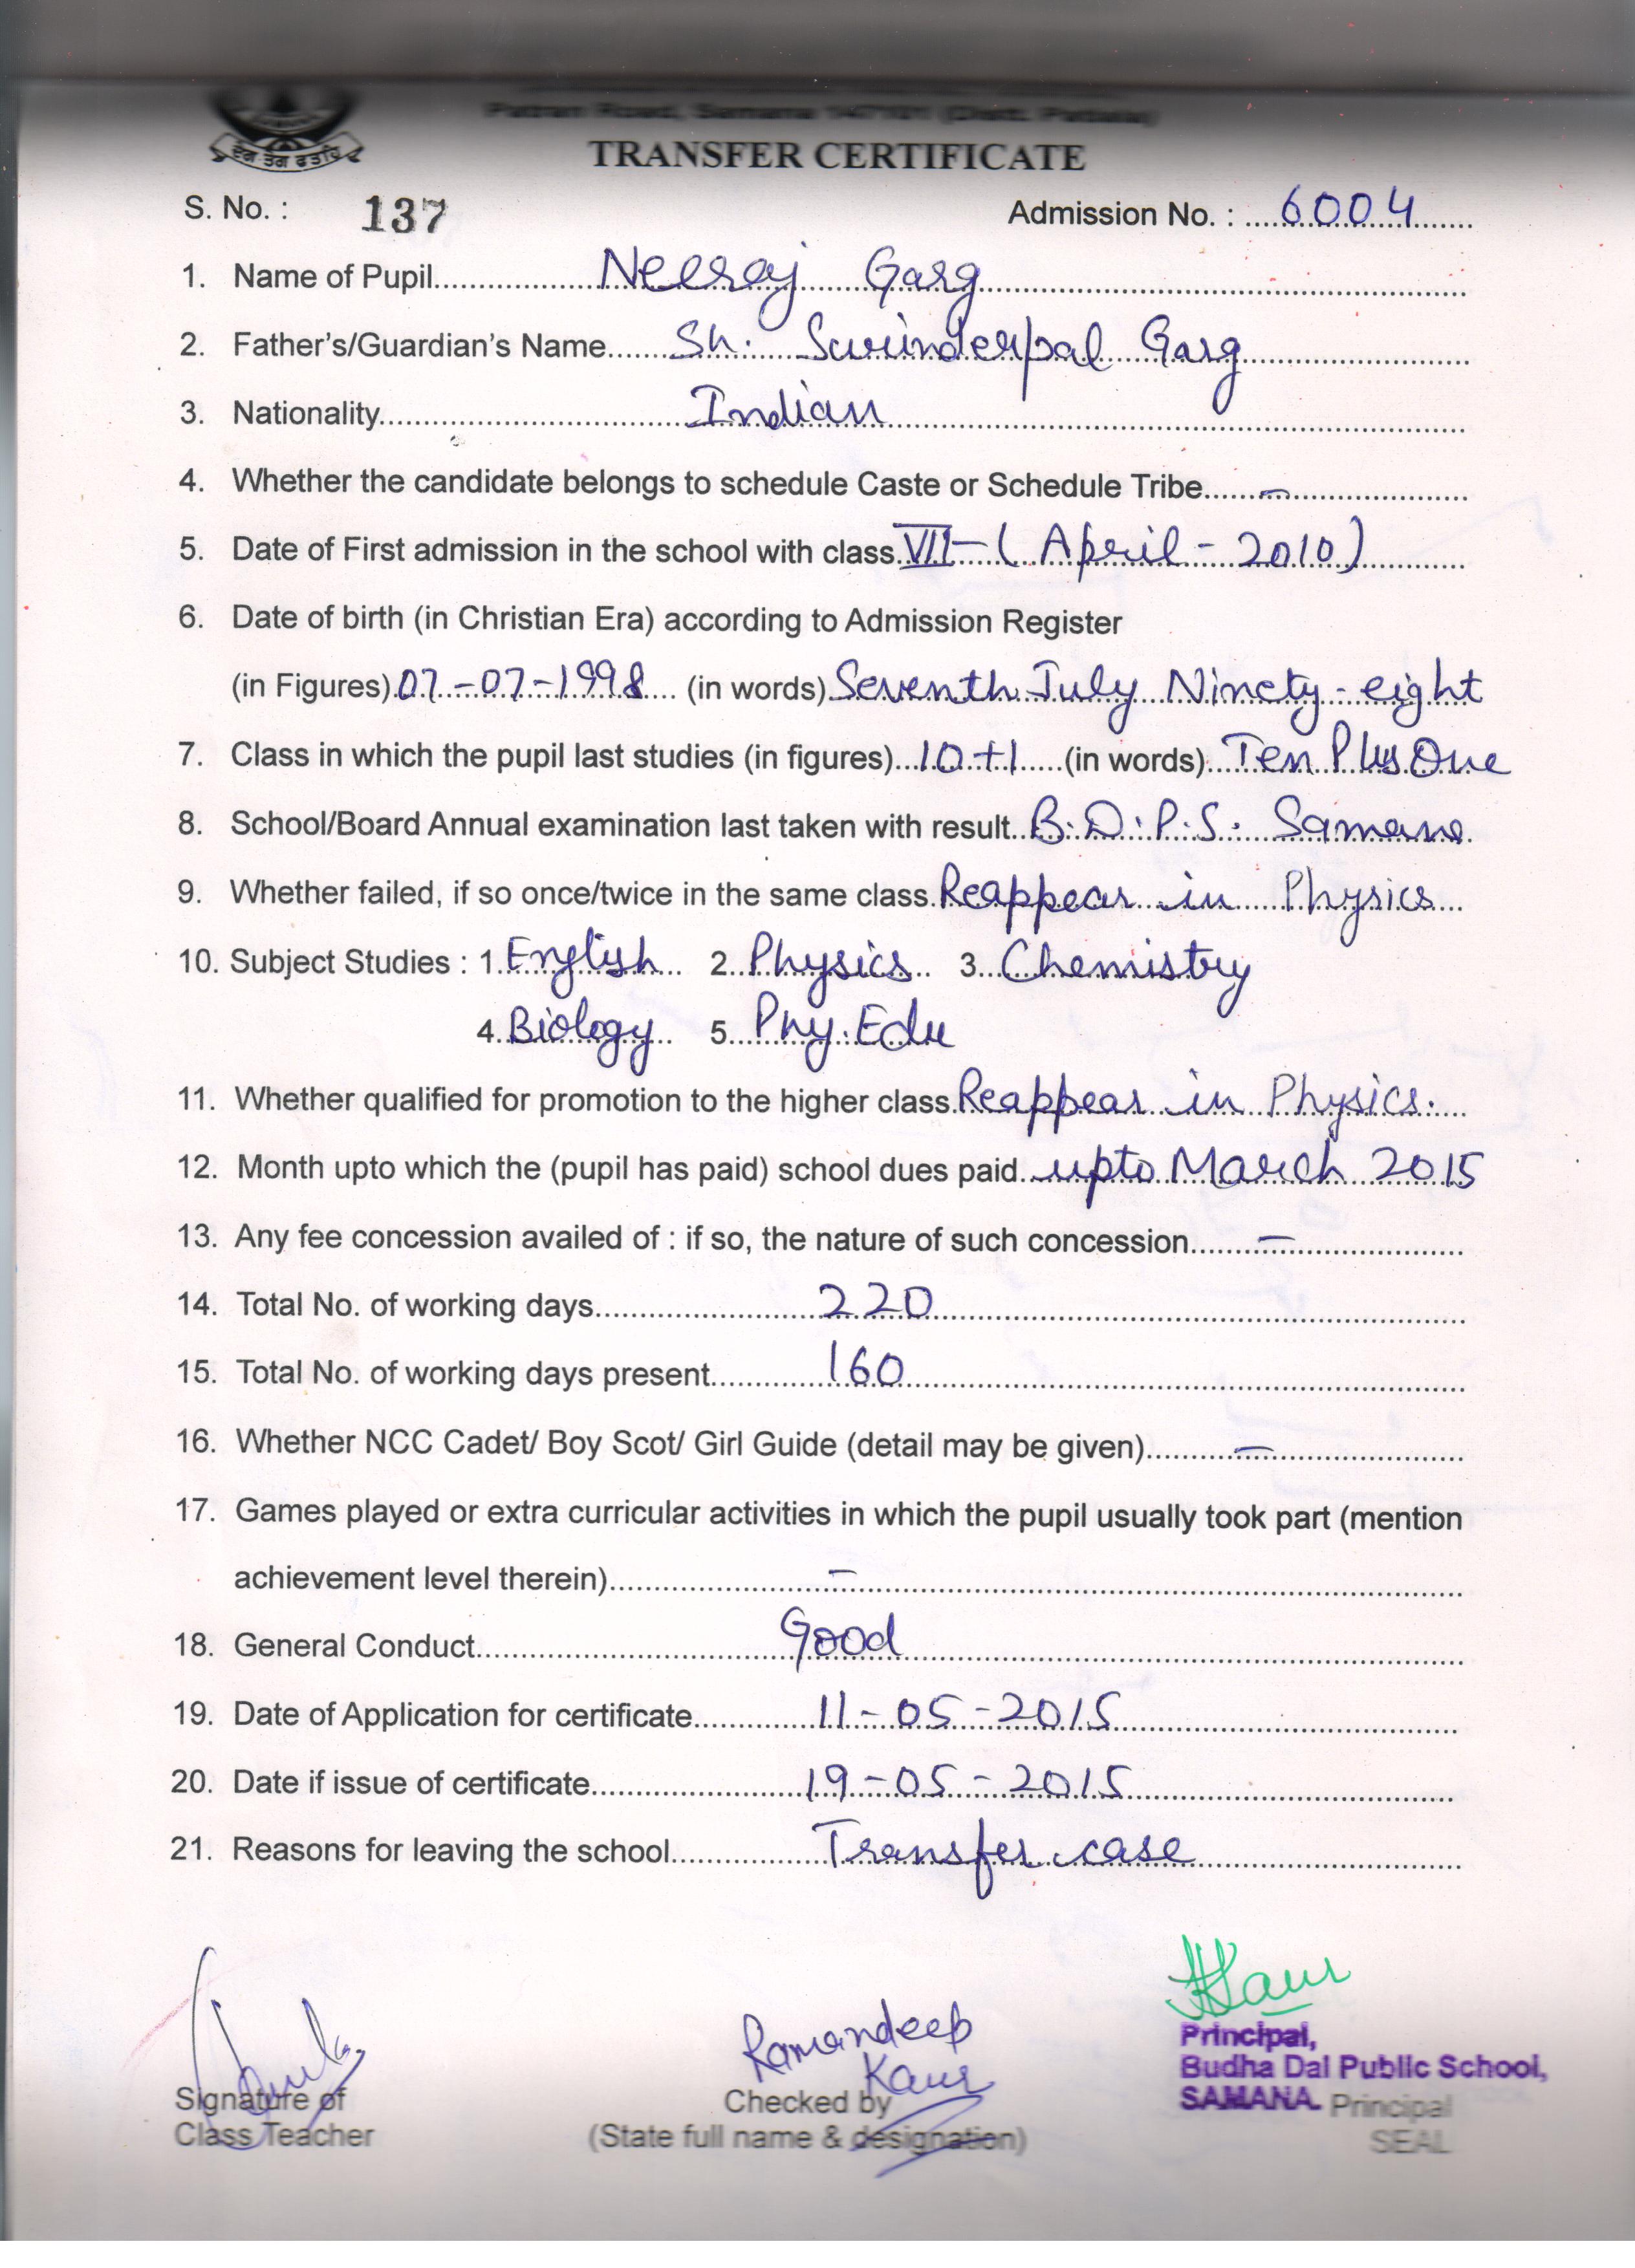 ਦੇਗ ਤੇਗ ਫਤਹਿ
Patran Road, Samana 147101 (Distt. Patiala)
TRANSFER CERTIFICATE
S. No. : 137 Admission No. : 6004
1. Name of Pupil Neeraj Garg
2. Father's/Guardian's Name Sh. Surinderpal Garg
3. Nationality Indian
4. Whether the candidate belongs to schedule Caste or Schedule Tribe —
5. Date of First admission in the school with class VII – (April - 2010)
6. Date of birth (in Christian Era) according to Admission Register
(in Figures) 07-07-1998 (in words) Seventh July Ninety-eight
7. Class in which the pupil last studies (in figures) 10+1 (in words) Ten Plus One
8. School/Board Annual examination last taken with result B.D.P.S. Samana
9. Whether failed, if so once/twice in the same class Reappear in Physics
10. Subject Studies : 1. English 2. Physics 3. Chemistry
4. Biology 5. Phy. Edu
11. Whether qualified for promotion to the higher class Reappear in Physics.
12. Month upto which the (pupil has paid) school dues paid upto March 2015
13. Any fee concession availed of : if so, the nature of such concession —
14. Total No. of working days 220
15. Total No. of working days present 160
16. Whether NCC Cadet/ Boy Scot/ Girl Guide (detail may be given) —
17. Games played or extra curricular activities in which the pupil usually took part (mention
achievement level therein) —
18. General Conduct Good
19. Date of Application for certificate 11-05-2015
20. Date if issue of certificate 19-05-2015
21. Reasons for leaving the school Transfer case
Kaur
Ramandeep
Kaur
Principal,
Budha Dal Public School,
SAMANA.
Signature of
Class Teacher
Checked by
(State full name & designation)
Principal
SEAL